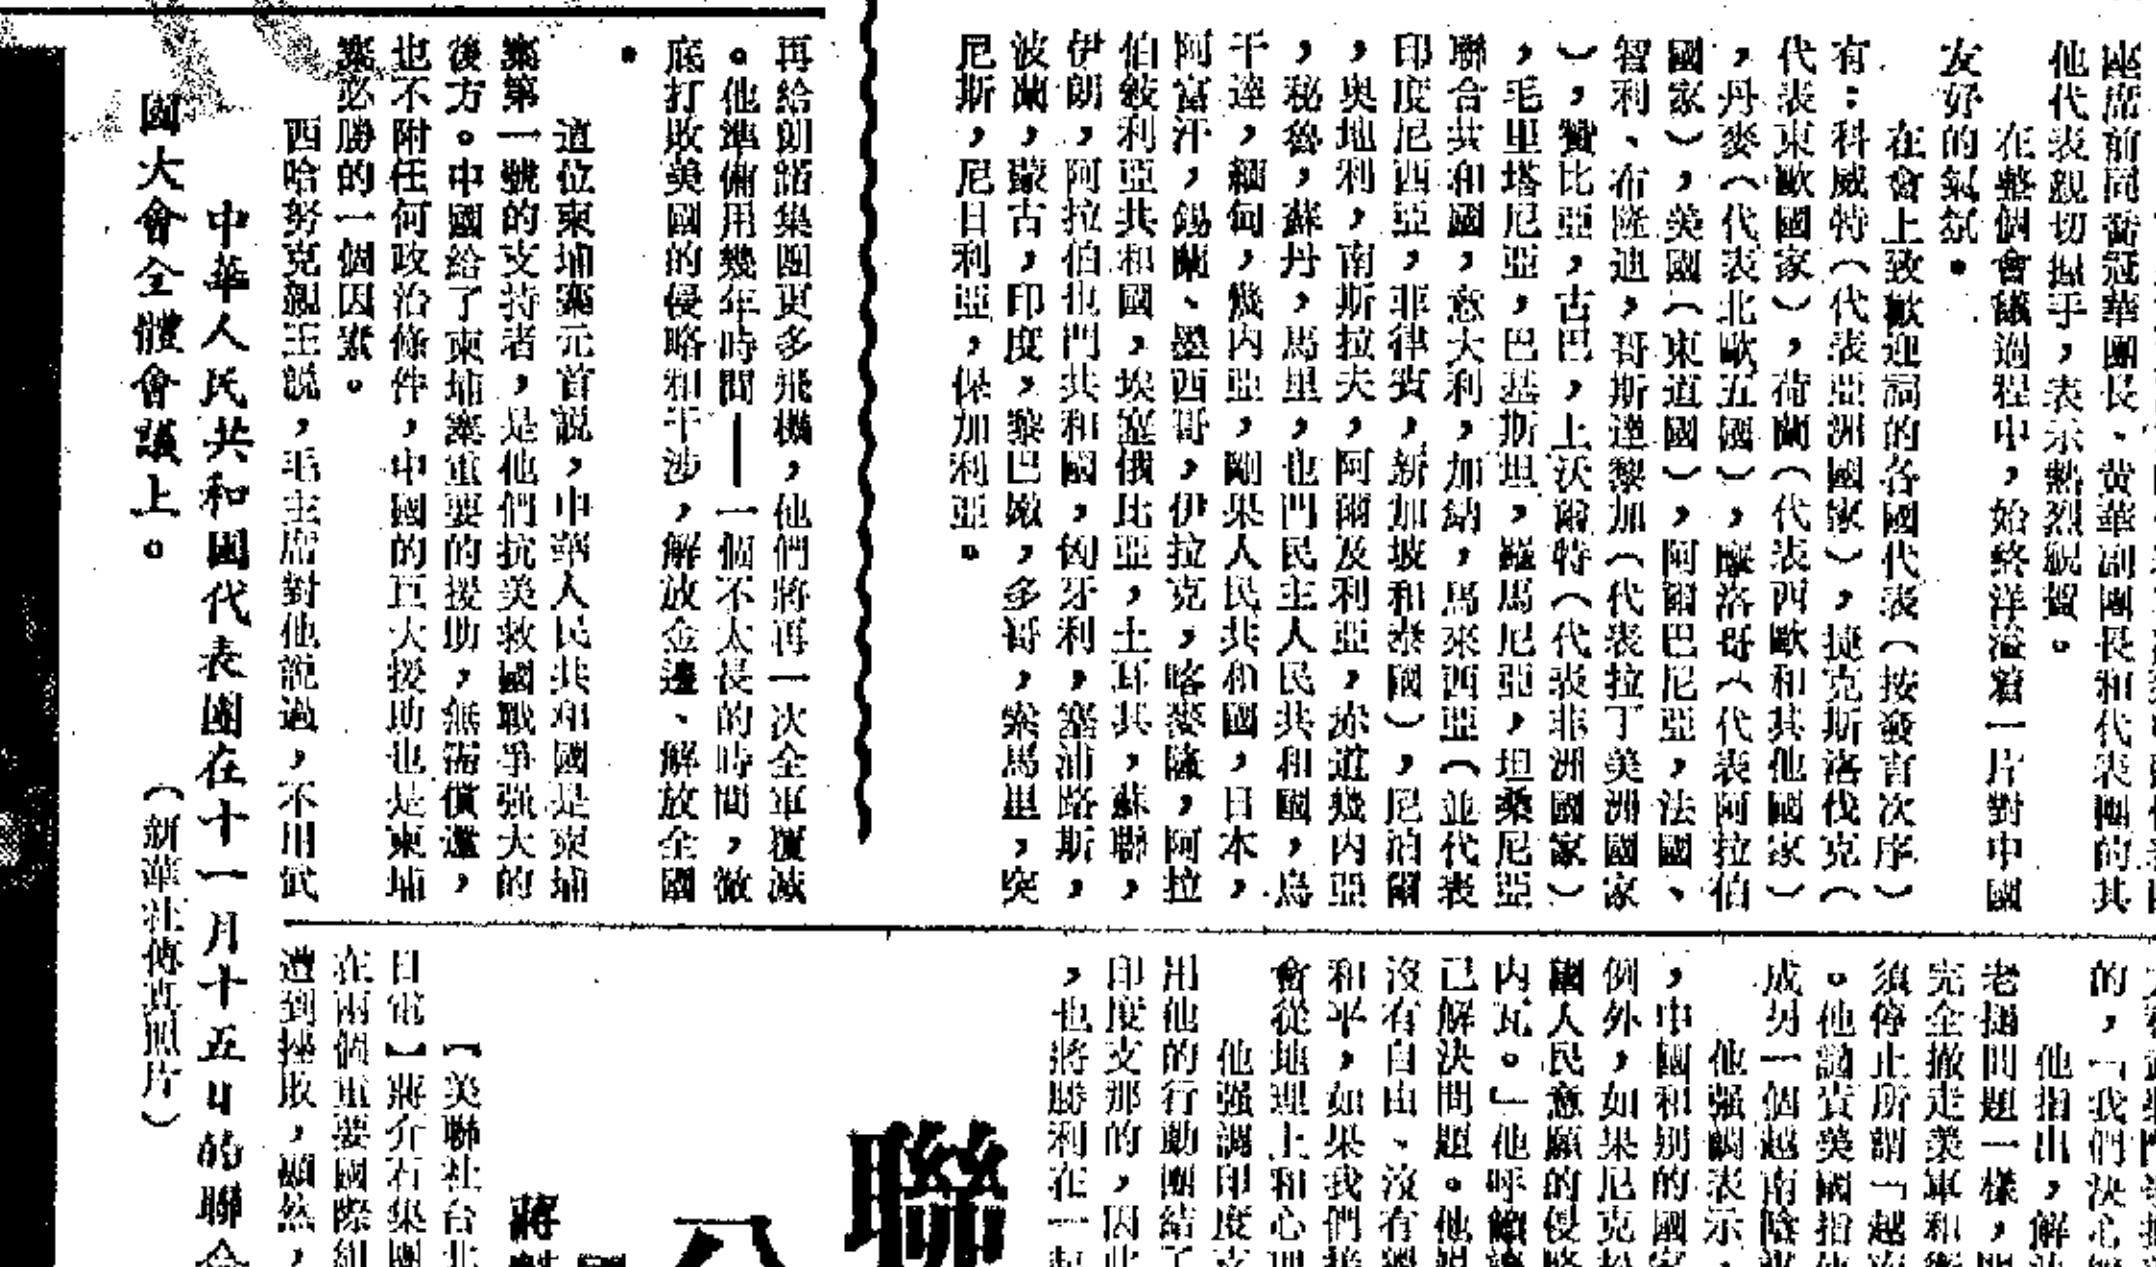 座席前同喬冠華團長、黃華副團長和代表團的其
他代表親切握手，表示熱烈祝賀。
在整個會議過程中，始終洋溢着一片對中國
友好的氣氛。
在會上致歡迎詞的各國代表（按發言次序）
有：科威特（代表亞洲國家），捷克斯洛伐克（
代表東歐國家），荷蘭（代表西歐和其他國家）
，丹麥（代表北歐五國），摩洛哥（代表阿拉伯
國家），美國（東道國），阿爾巴尼亞，法國、
智利、布隆迪，哥斯達黎加（代表拉丁美洲國家
），贊比亞，古巴，上沃爾特（代表非洲國家）
，毛里塔尼亞，巴基斯坦，羅馬尼亞，坦桑尼亞
聯合共和國，意大利，加納，馬來西亞（並代表
印度尼西亞，菲律賓，新加坡和泰國），尼泊爾
，奥地利，南斯拉夫，阿爾及利亞，赤道幾內亞
，秘魯，蘇丹，馬里，也門民主人民共和國，烏
干達，緬甸，幾内亞，剛果人民共和國，日本，
阿富汗，錫蘭、墨西哥，伊拉克，喀麥隆，阿拉
伯敍利亞共和國，埃塞俄比亞，土耳其，蘇聯，
伊朗，阿拉伯也門共和國，匈牙利，塞浦路斯，
波蘭，蒙古，印度，黎巴嫩，多哥，索馬里，突
尼斯，尼日利亞，保加利亞。
再給朗諾集團更多飛機，他們將再一次全軍覆滅
。他準備用幾年時間——一個不太長的時間，徹
底打敗美國的侵略和干涉，解放金邊、解放全國
。
這位柬埔寨元首説，中華人民共和國是柬埔
寨第一號的支持者，是他們抗美救國戰爭强大的
後方。中國給了柬埔寨重要的援助，無需償還，
也不附任何政治條件，中國的巨大援助也是柬埔
寨必勝的一個因素。
西哈努克親王説，毛主席對他説過，不用武
中華人民共和國代表團在十一月十五日的聯合
國大會全體會議上。
（新華社傳真照片）
的，「我們決心
他指出，解
老撾問題一樣，
完全撤走美軍和
須停止所謂「越
。他譴責美國指
成另一個越南
他强調表示，
，中國和别的國
例外，如果尼克松
國人民意願的侵略
内瓦。」他呼籲
已解決問題。他説
沒有自由、沒有
和平，如果我們
會從地理上和心理
他强調印度支
用他的行動團結了
印度支那的，因此
，也將勝利在一起
聯
八
蔣
【美聯社台北
日電】蔣介石集團
在兩個重要國際組
遭到挫敗，顯然，